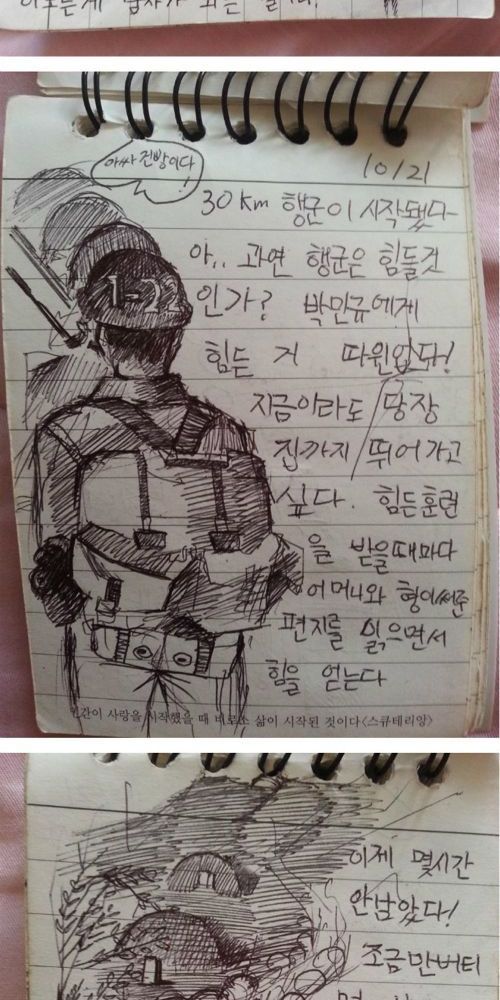 아싸 전방이다
10/21
30km 행군이 시작됐다
아.. 과연 행군은 힘들것
인가? 박민규에게
힘든 거 따윈없다!
지금이라도 당장
집까지 뛰어가고
싶다. 힘든훈련
을 받을때마다
어머니와 형이써준
편지를 읽으면서
힘을 얻는다
1-22
사랑을 시작했을 때 비로소 삶이 시작된 것이다<스큐테리앙>
이제 몇시간
안남았다!
조금만버티